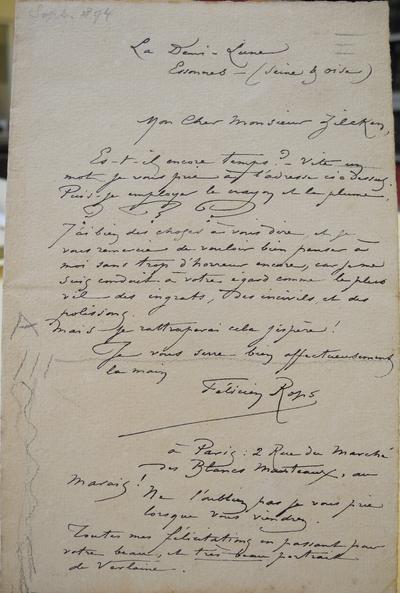 Sept. 1894
La Demi-Lune
Essonnes - (Seine & Oise)
Mon Cher Monsieur Zilcken,
Es-t-il encore temps? - Vite un
mot je vous prie à l'adresse ci-dessus.
Puis-je employer le crayon et la plume.
? ? ?
J'ai bien des choses à vous dire, et je
vous remercie de vouloir bien penser à
moi sans trop d'horreur encore, car je me
suis conduit à votre égard comme le plus
vil des ingrats, des incivils, et des
polissons.
Mais je rattraperai cela j'espère!
Je vous serre bien affectueusement
la main
Félicien Rops
à Paris: 2 Rue du Marché
des Blancs Manteaux, au
Marais!
Ne l'oubliez pas je vous prie
lorsque vous viendrez.
Toutes mes félicitations en passant pour
votre beau, et très beau portrait
de Verlaine.